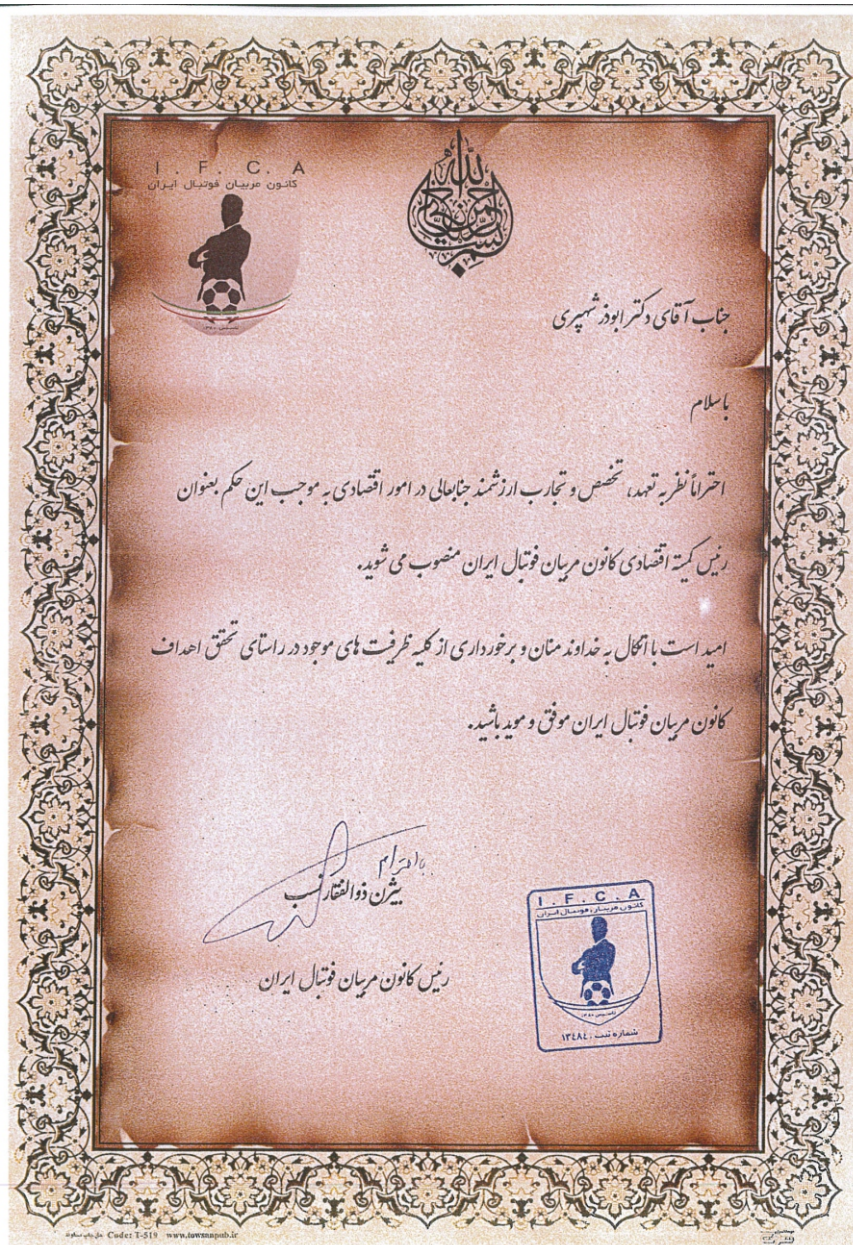 I . F. C. A
کانون مربیان فوتبال ایران
بسم الله الرحمن الرحیم
جناب آقای دکتر ابوذر شهپری
با سلام
احتراماً نظر به تعهد، تخصص و تجارب ارزشمند جنابعالی در امور اقتصادی به موجب این حکم بعنوان
رئیس کمیته اقتصادی کانون مربیان فوتبال ایران منصوب می شوید.
امید است با اتکال به خداوند منان و برخورداری از کلیه ظرفیت های موجود در راستای تحقق اهداف
کانون مربیان فوتبال ایران موفق و موید باشید.
با احترام
بیژن ذوالفقارنسب
رئیس کانون مربیان فوتبال ایران
I . F. C. A
کانون مربیان فوتبال ایران
شماره ثبت : ١٣٤٨٤
Code: T-519 www.tawsanpub.ir